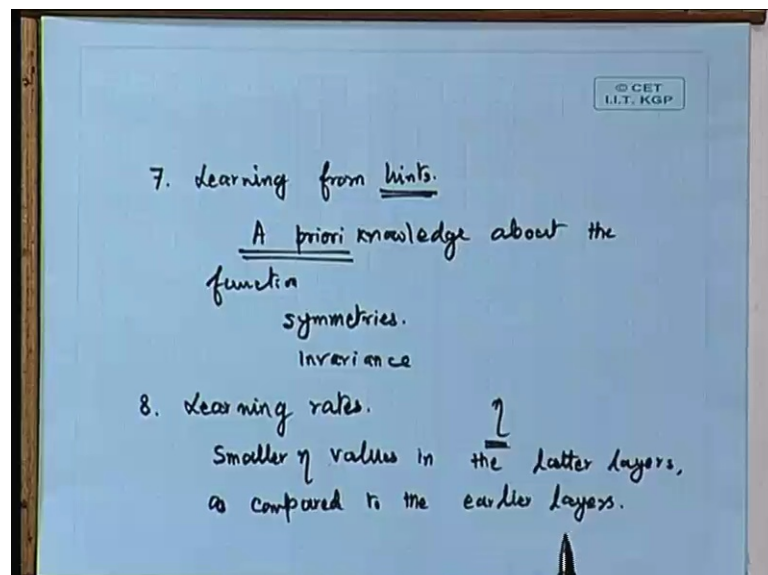 © CET
I.I.T. KGP
7. Learning from hints.
A priori knowledge about the
function
symmetries.
Invariance
8. Learning rates. η
Smaller η values in the latter layers,
as compared to the earlier layers.